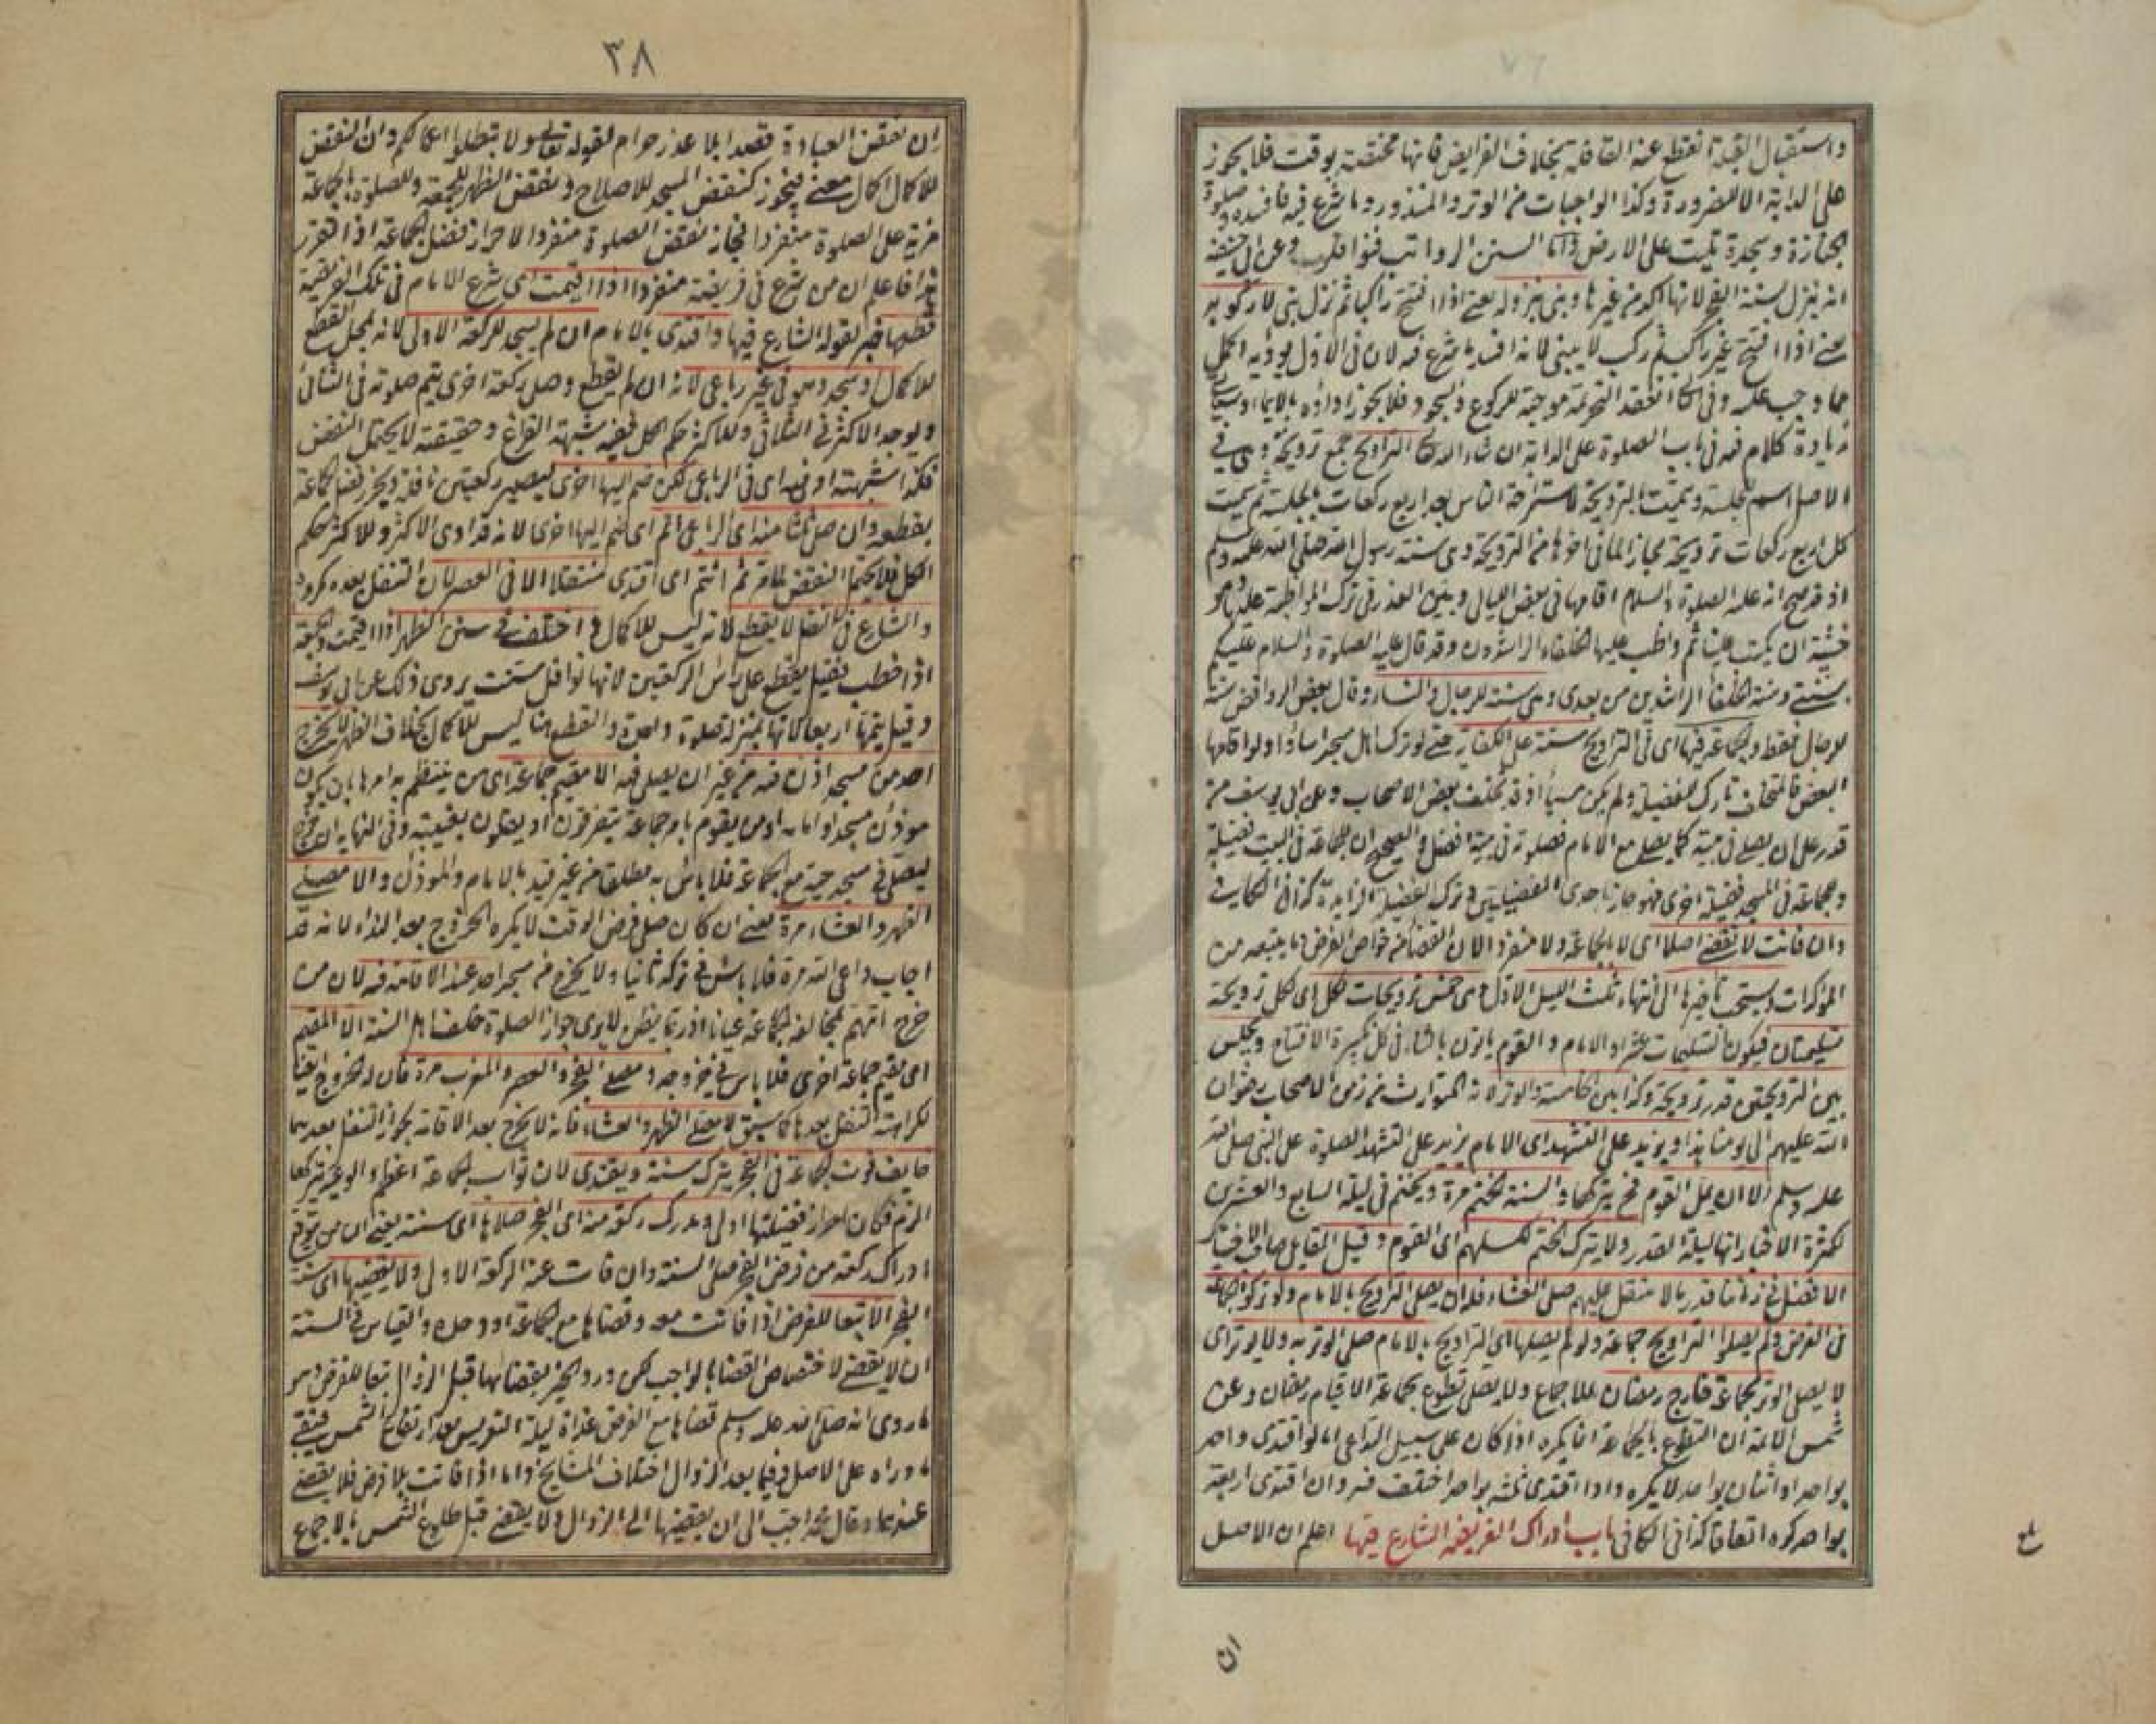 واستقبال القبلة تنقطع عنه القافلة بخلاف الفرايض فانها مختصة بوقت فلا يجوز
على الدابة الا للضرورة وكذا الواجبات من الوتر والمنذور وما شرع فيه فافسده وصلوة
الجنازة وسجدة تليت على الارض واما السنن الرواتب فنوافل وعن ابي حنيفة
انه ينزل لسنة الفجر لانها اكد من غيرها وبنى بنزوله يعني اذا افتتح راكبا ثم نزل بنى لا ركوبه
يعني اذا افتتح غير راكب ثم ركب لا يبني لانه افسد ما شرع فيه لان في الاول يؤديه اكمل
مما وجب عليه وفي الثاني انعقد التحريمة موجبة للركوع والسجود فلا يجوز اداؤه بالايماء وسيأتي
زيادة كلام فيه في باب الصلوة على الدابة ان شاء الله تعالى التراويح جمع ترويحة وهي في
الاصل اسم للجلسة وسميت بالترويحة لاستراحة الناس بعد اربع ركعات بالجلسة ثم سميت
كل اربع ركعات ترويحة مجازا لما في اخرها من الترويحة وهي سنة رسول الله صلى الله عليه وسلم
اذ قد صح انه عليه الصلوة والسلام اقامها في بعض الليالي وبين العذر في ترك المواظبة عليها وهو
خشية ان تكتب علينا ثم واظب عليها الخلفاء الراشدون وقد قال عليه الصلوة والسلام عليكم
بسنتي وسنة الخلفاء الراشدين من بعدي وهي سنة للرجال والنساء وقال بعض الروافض سنة
للرجال فقط والجماعة فيها اي في التراويح سنة على الكفاية حتى لو ترك اهل مسجد اساؤا ولو اقامها
البعض فالمتخلف تارك للفضيلة ولم يكن مسيأ اذ قد تخلف بعض الاصحاب وعن ابي يوسف من
قدر على ان يصلي في بيته كما يصلي مع الامام فصلوته في بيته افضل والصحيح ان للجماعة في البيت فضيلة
وللجماعة في المسجد فضيلة اخرى فهو حاز احدى الفضيلتين وترك الفضيلة الزايدة كذا في الكافي
وان فاتت لا تقضى اصلا اي لا بالجماعة ولا منفردا لان القضاء من خواص الفرض وما يتبعه من
المؤكدات ويستحب تاخيرها الى انتهاء ثلث الليل الاول وهي خمس ترويحات لكل اي لكل ترويحة
تسليمتان فيكون التسليمات عشرا والامام والقوم ياتون بالثناء في كل تكبيرة الافتتاح ويجلس
بين الترويحتين قدر ترويحة وكذا بين الخامسة والوتر لانه المتوارث من زمن الاصحاب رضوان
الله عليهم الى يومنا هذا ويزيد على التشهد اي الامام يزيد على التشهد الصلوة على النبي صلى الله
عليه وسلم الا ان يمل القوم فح يتركها والسنة الختم مرة ويختم في ليلة السابع والعشرين
لكثرة الاخبار انها ليلة القدر ولا يترك الختم لكسلهم اي القوم وقيل القايل صاحب الاختيار
الافضل في زماننا قدر ما لا يثقل عليهم صلى العشاء فله ان يصلي التراويح بالامام ولو تركوا الجماعة
في الفرض لم يصلوا التراويح جماعة ولو لم يصلها اي التراويح بالامام صلى الوتر به ولا يوتر اي
لا يصلي الوتر بجماعة خارج رمضان للاجماع ولا يصلي تطوع بجماعة الا قيام رمضان وعن
شمس الائمة ان التطوع بالجماعة انما يكره اذا كان على سبيل التداعي اما لو اقتدى واحد
بواحد او اثنان بواحد لا يكره واذا اقتدى ثلثة بواحد اختلف فيه وان اقتدى اربعة
بواحد كره اتفاقا كذا في الكافي باب ادراك الفريضة الشارع فيها اعلم ان الاصل
ان
٣٨
ان نقض العبادة قصدا بلا عذر حرام لقوله تعالى ولا تبطلوا اعمالكم وان النقض
للاكمال اكمال معنى فيجوز كنقض المسجد للاصلاح ونقض الظهر للجمعة وللصلوة بالجماعة
مزية على الصلوة منفردا فجاز نقض الصلوة منفردا لاحراز فضل الجماعة اذا تقرر
هذا فاعلم ان من شرع في فريضة منفردا اذا اقيمت اي شرع الامام في تلك الفريضة
قطعها خبر لقوله الشارع فيها واقتدى بالامام ان لم يسجد للركعة الاولى لانه بمحل القطع
للاكمال او سجد وهو في غير رباعي لانه ان لم يقطع وصلى ركعة اخرى يتم صلوته في الثنائي
ويوجد الاكثر في الثلاثي وللاكثر حكم الكل ففيه شبهة الفراغ وحقيقته لا يحتمل النقض
فكذا شبهته او فيه اي في الرباعي لكن ضم اليها اخرى ليصير ركعتين نافلة ويحرز فضل الجماعة
بقطعه وان صلى ثلثا منه اي الرباعي اتم اي ضم اليها اخرى لانه قد ادى الاكثر وللاكثر حكم
الكل فلا يحتمل النقض لما مر ثم ائتم اي اقتدى متنفلا الا في العصر لان التنفل بعده مكروه
والشارع في النفل لا يقطع لانه ليس للاكمال واختلف في سنن الظهر اذا اقيمت والجمعة
اذا خطب فقيل يقطع على رأس الركعتين لانها نوافل سنت يروى ذلك عن ابي يوسف
وقيل يتمها اربعا لانها بمنزلة صلوة واحدة والقطع هنا ليس للاكمال بخلاف الظهر لا يخرج
احد من مسجد اذن فيه من غير ان يصلي فيه الا مقيم جماعة اي من ينتظم به امرها بان يكون
موذن مسجد او امامه او من يقوم بامر جماعة يتفرقون او يقلون بغيبته وفي النهاية ان خرج
ليصلي في مسجد حيه مع الجماعة فلا باس به مطلقا من غير قيد بالامام والموذن والا مصلي
الظهر والعشاء مرة يعني ان كان صلى فرض الوقت لا يكره الخروج بعد النداء لانه قد
اجاب داعي الله مرة فلا باس في تركه ثانيا ولا يخرج من مسجد احد عند الاقامة فيه لان من
خرج اتهم بمخالفة الجماعة عيانا اذ ربما يظن انه لا يرى جواز الصلوة خلف اهل السنة الا المقيم
اي مقيم جماعة اخرى فلا باس في خروجه ومصلي الفجر والعصر والمغرب مرة فان له الخروج ايضا
لكراهة التنفل بعدها كما سبق لا مصلي الظهر والعشاء فانه لا يخرج بعد الاقامة لجواز التنفل بعدهما
خايف فوت الجماعة في الفجر يترك سنته ويقتدي لان ثواب الجماعة اعظم والوعيد بتركها
الزم فكان احراز فضيلتها اولى ومدرك ركعة منه اي الفجر صلاها اي سنته يعني ان من يتوقع
ادراك ركعة من فرض الفجر صلى السنة وان فاتت عنه الركعة الاولى ولا يقضيها اي سنة
الفجر الا تبعا للفرض اذا فاتت معه وقضاها مع الجماعة او وحده والقياس في السنة
ان لا يقضى لاختصاص القضاء بالواجب لكن ورد الخبر بقضائها قبل الزوال تبعا للفرض وهو
ما روي انه صلى الله عليه وسلم قضاها مع الفرض غداة ليلة التعريس بعد ارتفاع الشمس فبقي
ما وراه على الاصل وفيما بعد الزوال اختلاف المشايخ واما اذا فاتت بلا فرض فلا يقضى
عندهما وقال محمد احب الي ان يقضيها الى الزوال ولا يقضى قبل طلوع الشمس بالاجماع